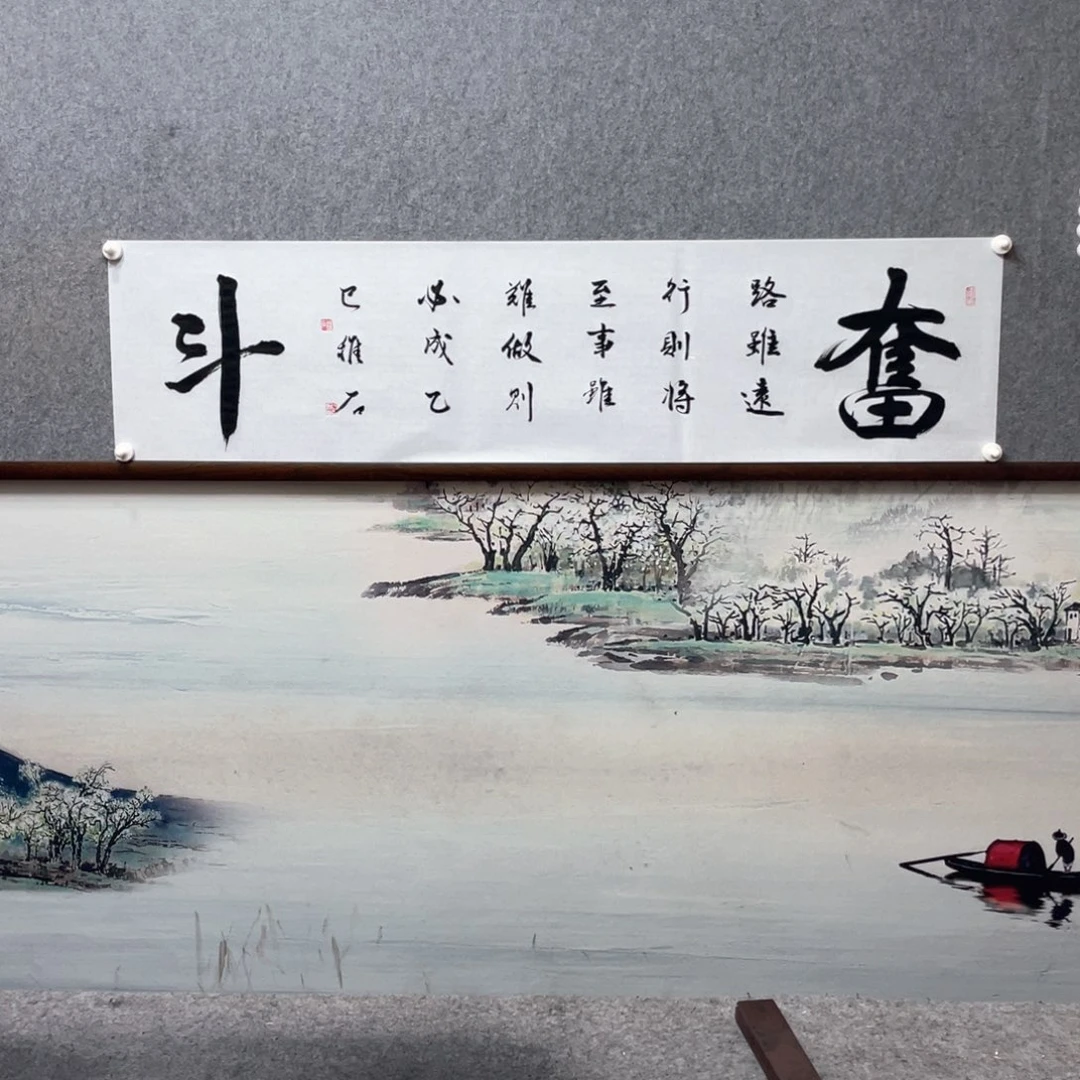 奮
路雖遠
行則將
至事雖
難做则
必成乙
巳石
斗